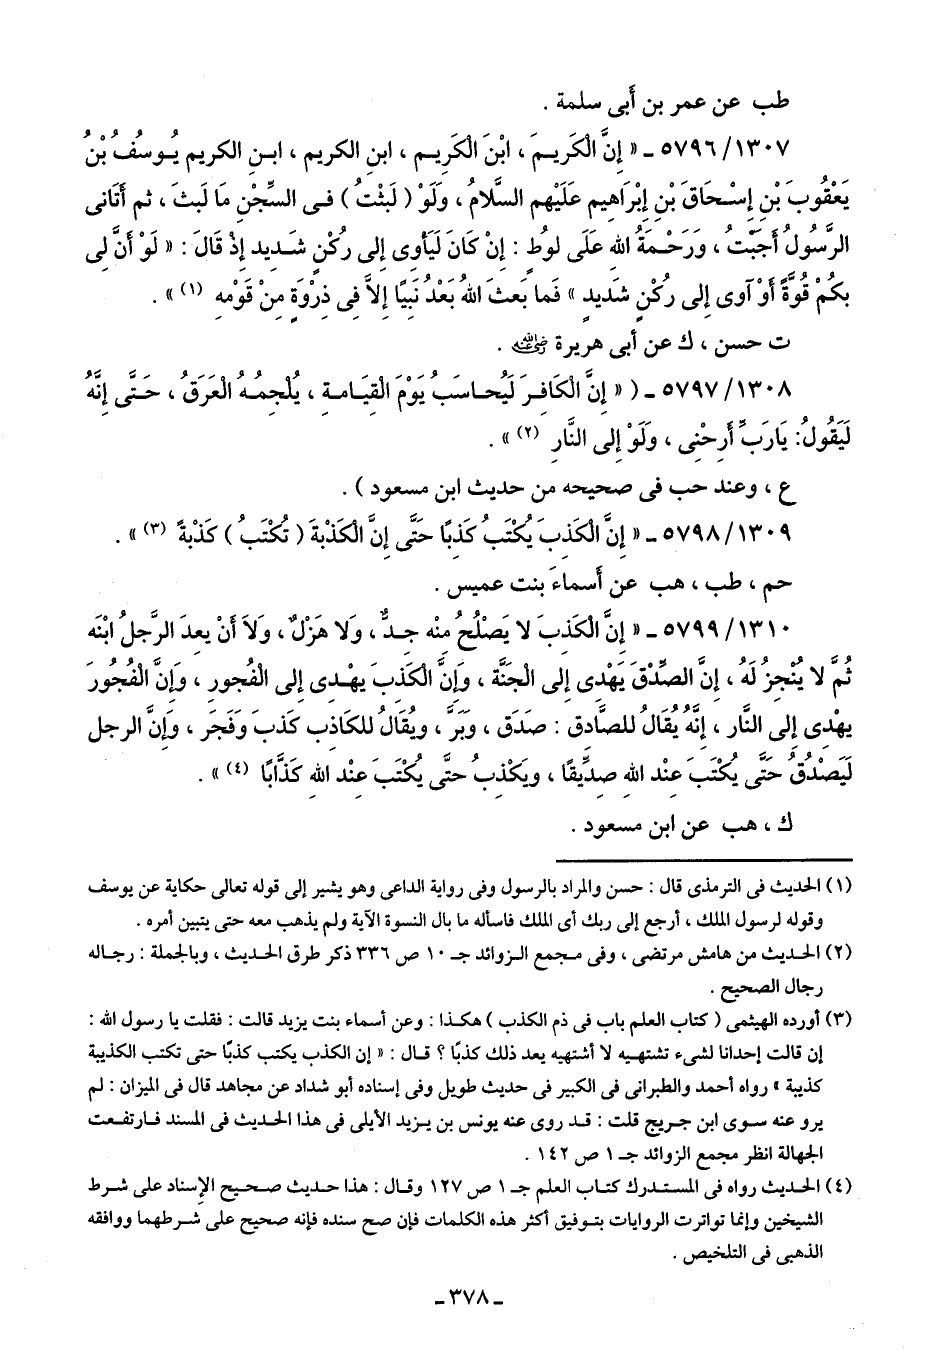 طب عن عمر بن أبى سلمة .
٥٧٩٦/١٣٠٧ ـ « إِنَّ الْكَرِيمَ ، ابْنَ الْكَرِيم ، ابنِ الكريم ، ابنِ الكريم يُوسُفُ بْنُ
يَعْقُوبَ بْنِ إِسْحَاقَ بْنِ إِبْرَاهِيم عَلَيْهم السَّلامُ ، وَلَوْ ( لَبِثْتُ ) فى السِّجْنِ مَا لَبِثَ ، ثم أَتَانى
الرَّسُولُ أَجَبْتُ ، وَرَحْمَةُ الله عَلَى لوُط : إِنْ كَانَ لَيَأوى إِلى رُكْنٍ شَديد إِذْ قَالَ : « لَوْ أَنَّ لِى
بِكُمْ قُوَّةً أَوْ آوى إِلى رُكْنٍ شَديدٍ » فَما بَعَثَ اللهُ بَعْدُ نَبِيًا إِلاَّ فِى ذِرْوَةٍ مِنْ قَوْمِه (١) » .
ت حسن ، ك عن أبى هريرة رضي الله عنه .
٥٧٩٧/١٣٠٨ ـ ( « إِنَّ الْكَافِرَ لَيُحَاسَبُ يَوْمَ الْقِيَامِة ، يُلْجِمُهُ الْعَرَقُ ، حَتَّى إِنَّهُ
لَيَقُولُ: يَارَبِّ أَرِحْنِى ، وَلَوْ إِلى النَّارِ (٢) » .
ع ، وعند حب فى صحيحه من حديث ابن مسعود ) .
٥٧٩٨/١٣٠٩ ـ « إِنَّ الْكَذِبَ يُكْتَبُ كَذِبًا حَتَّى إِنَّ الْكَذْبَةَ ( تُكْتَبُ ) كَذْبِةً (٣) » .
حم ، طب ، هب عن أَسماءَ بنت عميس .
٥٧٩٩/١٣١٠ ـ « إِنَّ الْكَذِبَ لا يَصْلُحُ مِنْه جِدٌّ ، وَلا هَزْلٌ ، وَلاَ أَنْ يعدَ الرَّجلُ ابْنَه
ثُمَّ لا يُنْجِزُ لَهُ ، إِنَّ الصِّدْقَ يَهْدى إِلى الجَنَّة ، وَإِنَّ الْكَذِبَ يهْدِى إِلى الْفُجورِ ، وَإِنَّ الْفُجُورَ
يهْدِى إِلى النَّار ، إِنَّهُ يُقَالُ للصَّادِق : صَدَقَ ، وَبَرَّ ، ويُقَالُ للكاذِب كَذبَ وَفَجَر ، وَإِنَّ الرجل
لَيَصْدُقُ حَتَّى يُكْتَبَ عِنْدَ الله صِدِّيقًا ، ويَكْذِبُ حتَّى يُكْتَبَ عِنْدِ الله كَذَّابًا (٤) » .
ك ، هب عن ابن مسعود .
(١) الحديث فى الترمذى قال : حسن والمراد بالرسول وفى رواية الداعى وهو يشير إلى قوله تعالى حكاية عن يوسف
وقوله لرسول الملك ، أرجع إلى ربك أى الملك فاسأله ما بال النسوة الآية ولم يذهب معه حتى يتبين أمره .
(٢) الحديث من هامش مرتضى ، وفى مجمع الزوائد جـ ١٠ ص ٣٣٦ ذكر طرق الحديث ، وبالجملة : رجاله
رجال الصحيح .
(٣) أورده الهيثمى ( كتاب العلم باب فى ذم الكذب ) هكذا : وعن أسماء بنت يزيد قالت : فقلت يا رسول الله :
إن قالت إحدانا لشىء تشتهيه لا أشتهيه يعد ذلك كذبًا ؟ قال : « إن الكذب يكتب كذبًا حتى تكتب الكذيبة
كذيبة » رواه أحمد والطبرانى فى الكبير فى حديث طويل وفى إسناده أبو شداد عن مجاهد قال فى الميزان : لم
يرو عنه سوى ابن جريج قلت : قد روى عنه يونس بن يزيد الأيلى فى هذا الحديث فى المسند فارتفعت
الجهالة انظر مجمع الزوائد جـ ١ ص ١٤٢ .
(٤) الحديث رواه فى المستدرك كتاب العلم جـ ١ ص ١٢٧ وقال : هذا حديث صحيح الإسناد على شرط
الشيخين وإنما تواترت الروايات بتوفيق أكثر هذه الكلمات فإن صح سنده فإنه صحيح على شرطهما ووافقه
الذهبى فى التلخيص .
ـ ٣٧٨ ـ